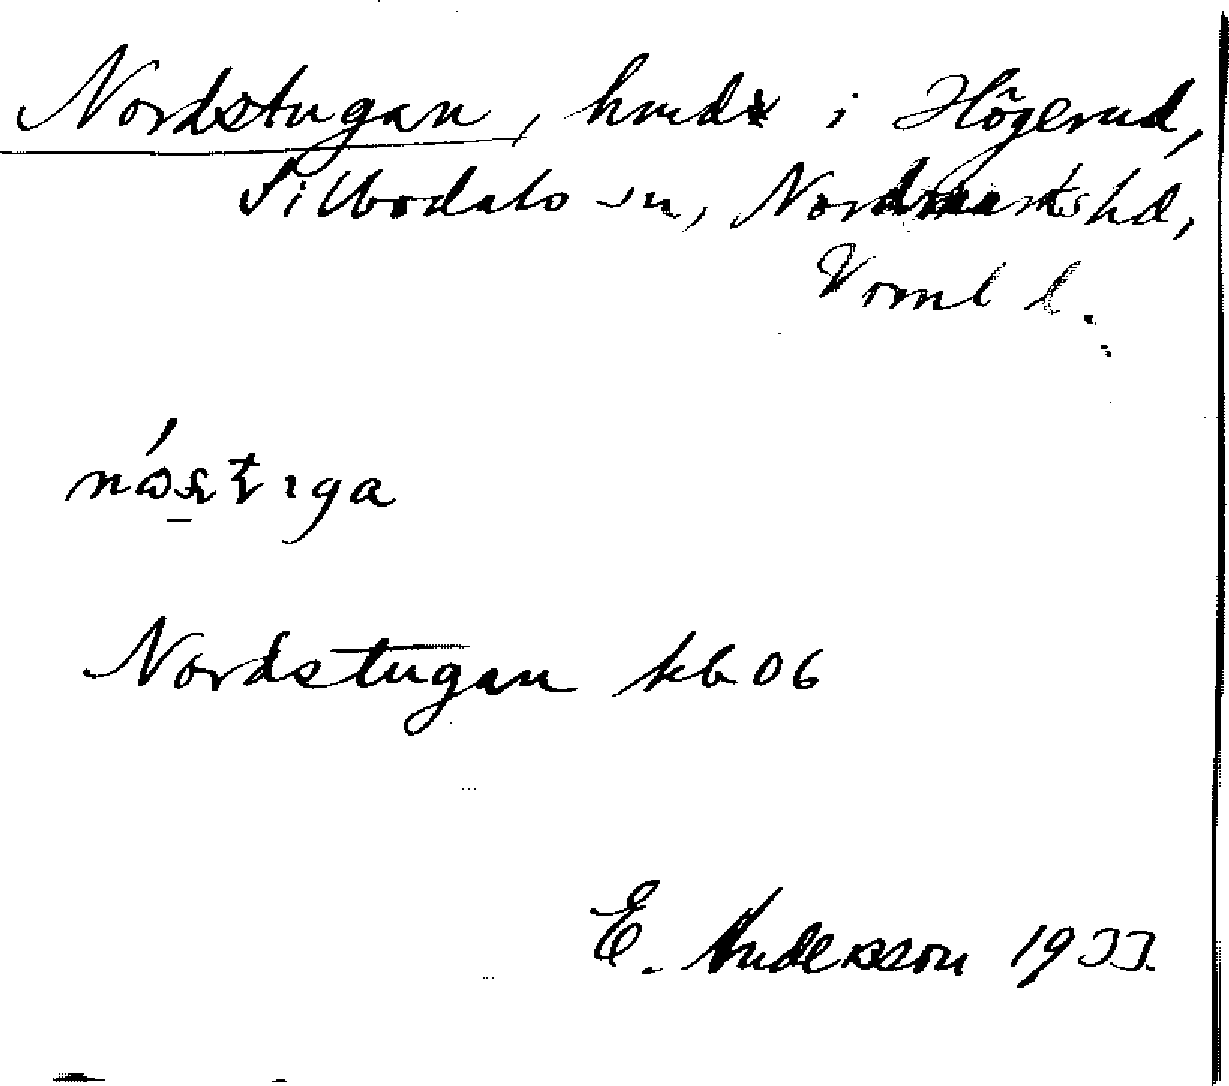 Nordstugan, hmd i Högerud,
Silbodals sn, Nordmarks hd,
Vrml l.
Nordstugan kb 06
E. Andersson 1933.